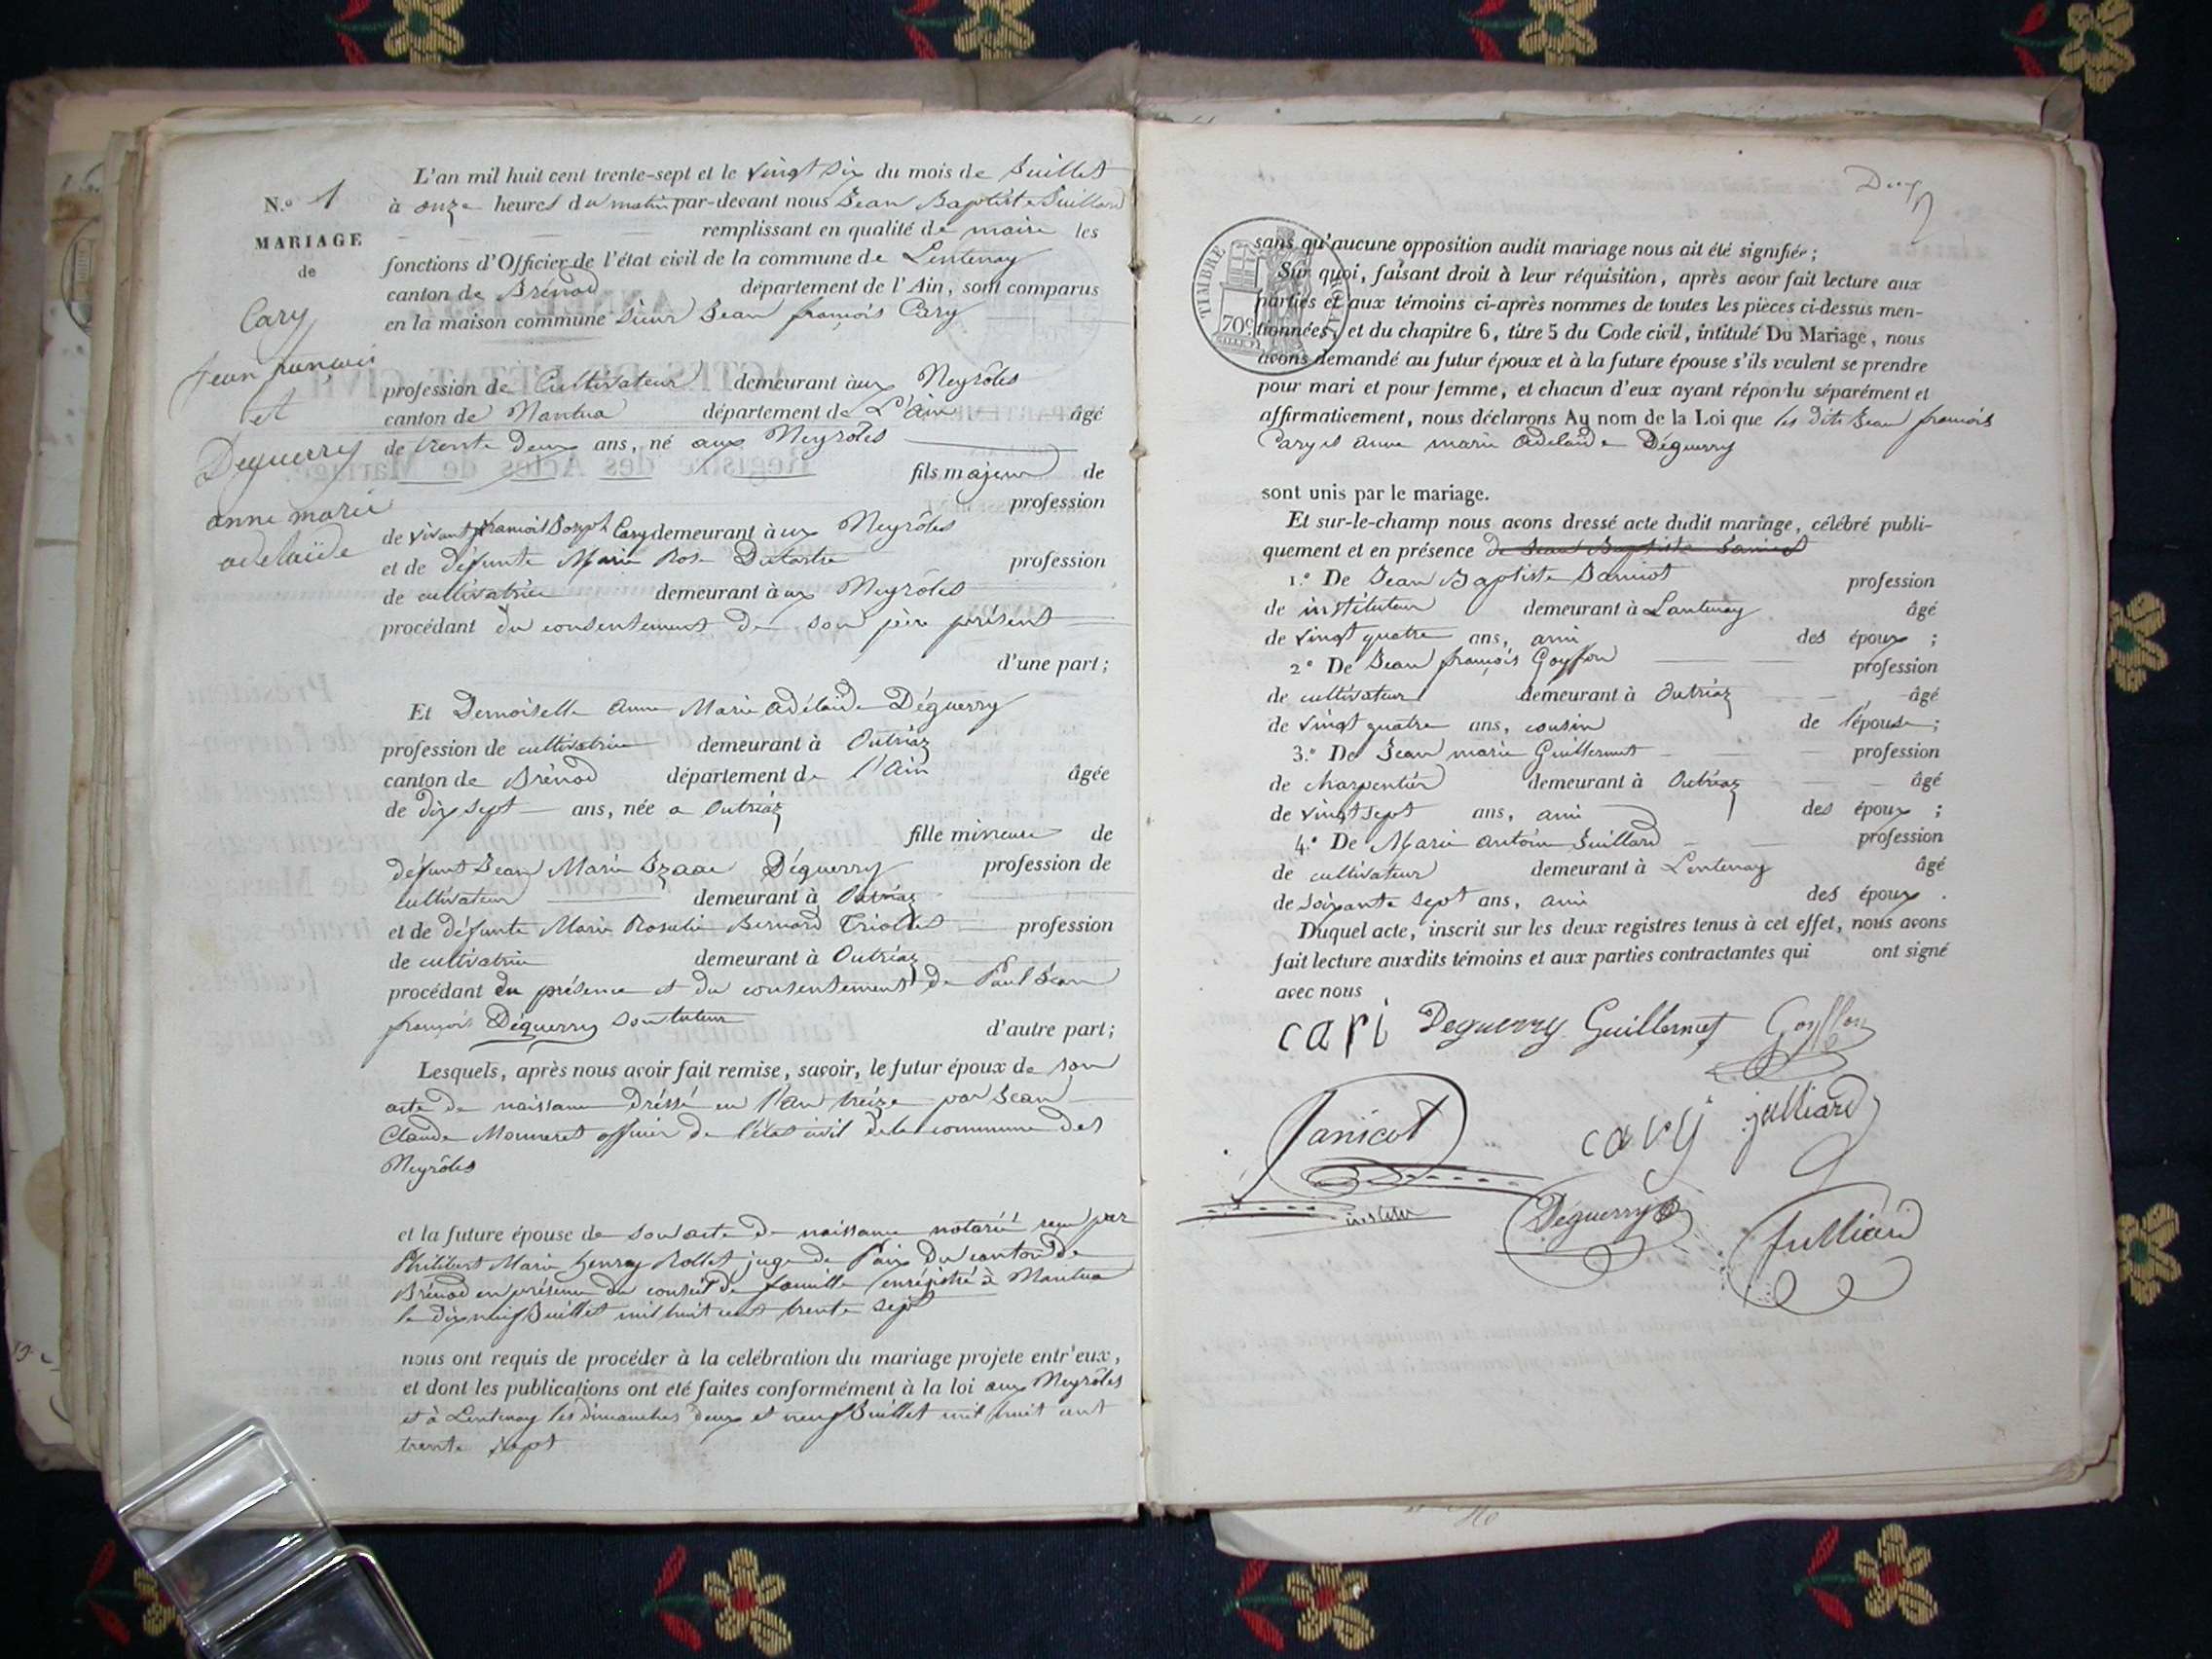 L'an mil huit cent trente-sept et le vingt six du mois de Juillet
N.º 1
à onze heures du matin par-devant nous Jean Baptiste Juillard
MARIAGE
remplissant en qualité de maire les
de
fonctions d'Officier de l'état civil de la commune de Lentenay
canton de Brénod département de l'Ain, sont comparus
Cary
en la maison commune sieur Jean françois Cary
Jean françois
profession de Cultivateur demeurant aux Neyrôles
et
canton de Nantua département de L'ain âgé
Deguerry
de trente deux ans, né aux Neyrôles
fils majeur de
anne marie
profession
adelaïde
de vivant françois Joseph Cary demeurant aux Neyrôles
et de défunte Marie Rose Dutartre profession
de cultivatrice demeurant aux Neyrôles
procédant du consentement de son père présent
d'une part;
Et Demoiselle Anne Marie Adélaïde Déguerry
profession de cultivatrice demeurant à Outriaz
canton de Brénod département de l'Ain âgée
de dix sept ans, née a Outriaz
fille mineure de
défunt Jean Marie Izaac Déguerry profession de
cultivateur demeurant à Outriaz
et de défunte Marie Rosalie Bernard profession
de cultivatrice demeurant à Outriaz
procédant en présence et du consentement de Paul Jean
françois Déguerry son tuteur d'autre part;
Lesquels, après nous avoir fait remise, savoir, le futur époux de son
acte de naissance dréssé en l'an treize par Jean
Claude Monneret officier de l'état civil de la commune des
Neyrôles
et la future épouse de son acte de naissance notarié reçu par
Philibert Marie henry Rollet juge de Paix du canton de
Brénod en présence du conseil de famille enrégistré à Nantua
le dix neuf Juillet mil huit cent trente sept
nous ont requis de procéder à la celébration du mariage projete entr'eux,
et dont les publications ont été faites conformément à la loi aux Neyrôles
et à Lentenay les dimanches deux et neuf Juillet mil huit cent
trente sept
Deux
TIMBRE ROYAL
70c
sans qu'aucune opposition audit mariage nous ait été signifiée;
Sur quoi, faisant droit à leur réquisition, après avoir fait lecture aux
parties et aux témoins ci-après nommes de toutes les pièces ci-dessus men-
tionnées, et du chapitre 6, titre 5 du Code civil, intitulé Du Mariage, nous
avons demandé au futur époux et à la future épouse s'ils veulent se prendre
pour mari et pour femme, et chacun d'eux ayant répondu séparément et
affirmativement, nous déclarons Au nom de la Loi que les dits Jean françois
Cary et anne marie Adelaïde Déguerry
sont unis par le mariage.
Et sur-le-champ nous avons dressé acte dudit mariage, célébré publi-
quement et en présence de Jean Baptiste Janicot
1.º De Jean Baptiste Janicot profession
de instituteur demeurant à Lantenay âgé
de vingt quatre ans, ami des époux ;
2º De Jean françois Goyffon profession
de cultivateur demeurant à Outriaz âgé
de vingt quatre ans, cousin de l'épouse ;
3.º De Jean marie Guillermet profession
de charpentier demeurant à Outriaz âgé
de vingt sept ans, ami des époux ;
4.º De Marie Antoine Juillard profession
de cultivateur demeurant à Lentenay âgé
de soixante sept ans, ami des époux .
Duquel acte, inscrit sur les deux registres tenus à cet effet, nous avons
fait lecture auxdits témoins et aux parties contractantes qui ont signé
avec nous
cari Deguerry Guillermet Goyffon
Janicot cary julliard
Déguerry Julliard